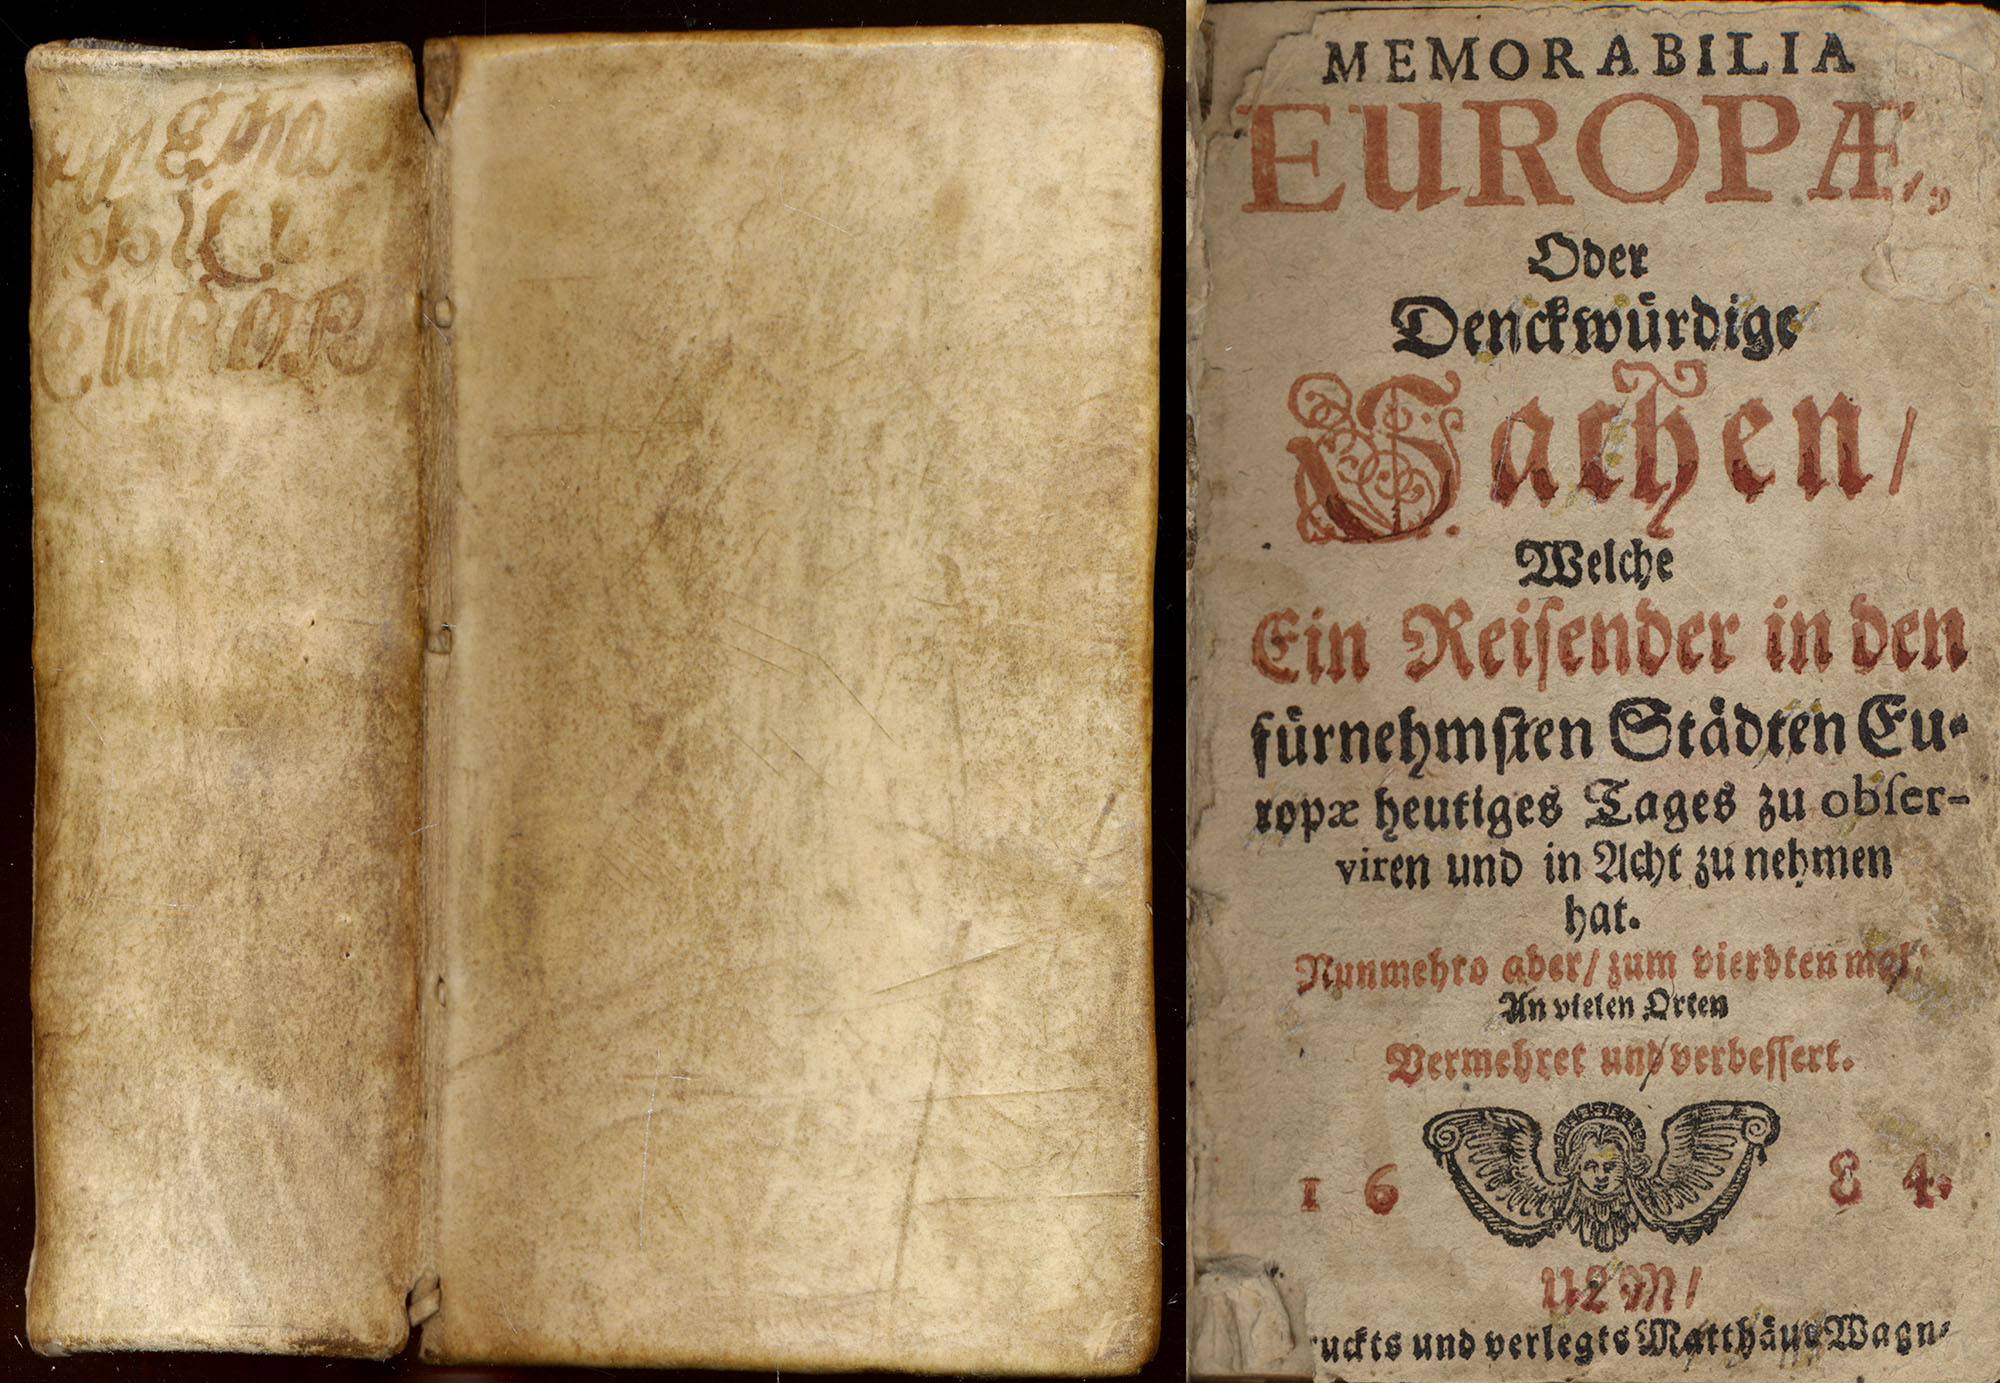 MEMORA
BILIA
EUROP
MEMORABILIA
EUROPÆ,
Oder
Denckwürdige
Sachen/
Welche
Ein Reiſender in den
fürnehmſten Städten Eu-
ropæ heutiges Tages zu obſer-
viren und in Acht zu nehmen
hat.
Nunmehro aber/ zum vierdten mal/
An vielen Orten
Vermehret und verbeſſert.
1 6 8 4.
ULM/
ruckts und verlegts Matthäus Wagn-